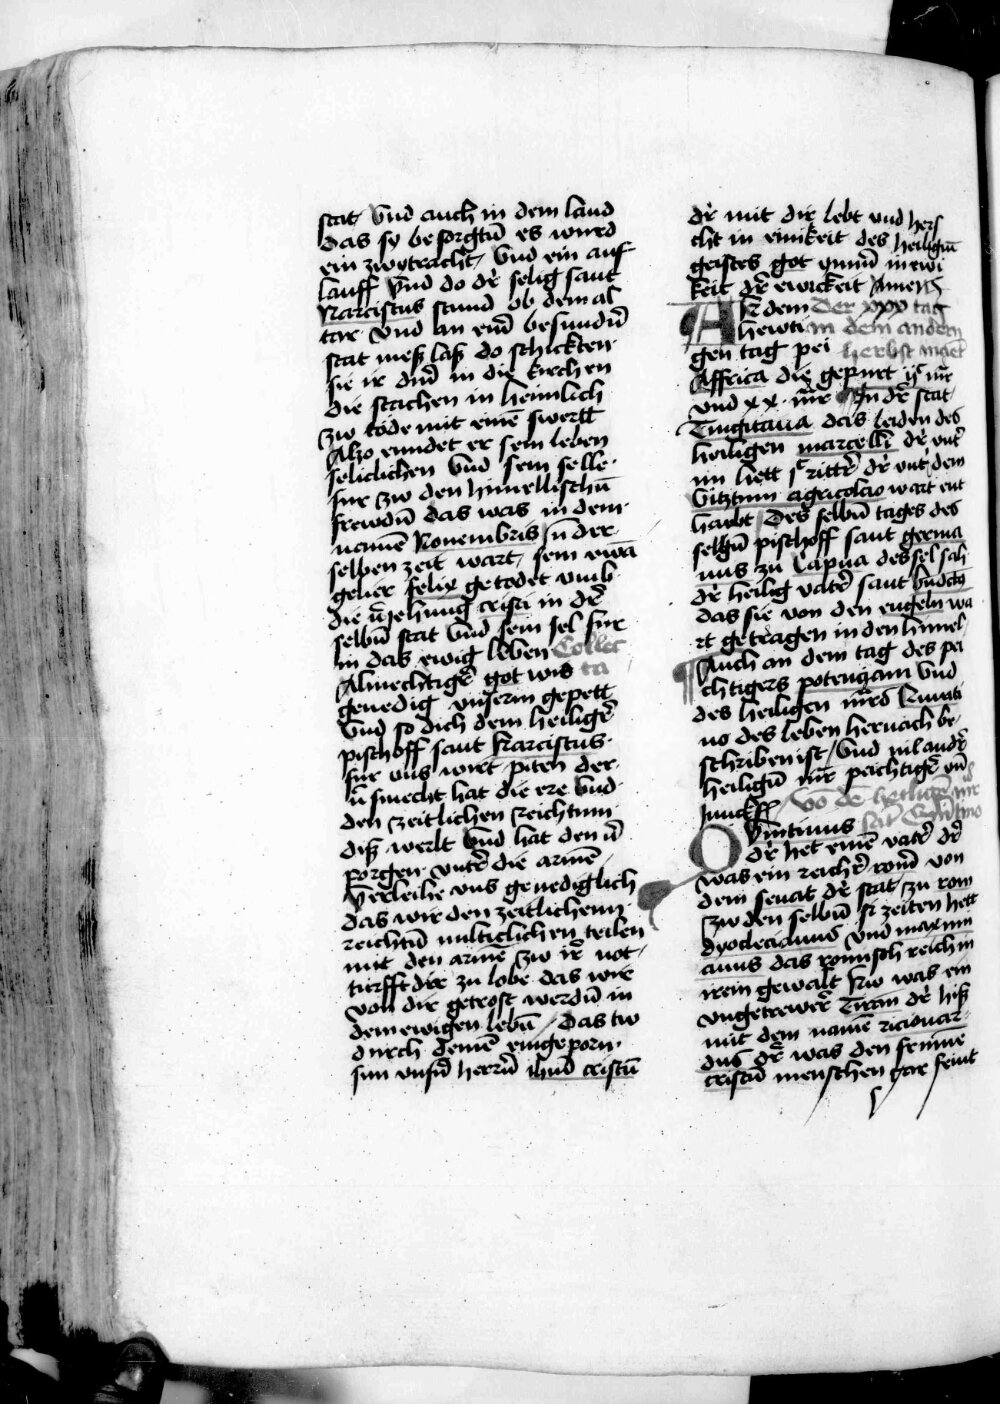 stat vnd auch in dem land
das sy besorgtn̄ es wurd
ein zwitracht / vnd ein auf
lauff vnd do dr̄ selig sant
Narcistus stund ob dem al
tar vnd an ein̄ besundn̄
stat mess lass do schickten
sie ir din̄ in die kirchen
die stachen in heimlich
zw tode mit einē swertt
Also enndet er sein leben
seliclichen vnd sein selle
fur zw den himellischn̄
frewdn̄ das was in dem
namē Nouembris In der
selben zeit wart / sein ewā
gelier felix getodet vmb
die v̄iehung cristi in dr̄
selbn̄ stat vnd sein sel fur
in das ewig leben Collec
Almechtigr̄ got wis ta
genedig vnserm gepett
vnd so dich dem heiligr̄
pischoff sant Narcistus
fur vns wirt piten der
v̄smecht hat die ere vnd
den zeitlichen reichtum
diss werlt vnd hat den v̄
porgen vntr̄ die armē
Verleihe vns genediglich
das wir den zeitlichenn
reichtū milticlichen teilen
mit den armē zw ir̄ not
turfft dir zu lobe das wir
von dir getrost werdn̄ in
dem ewigen lebn̄ / Das tw
durch deinē eingeporn
sun vnsn̄ herrn̄ ihm̄ cristū
dr̄ mit dir lebt vnd hers
cht in einikeit des heilign̄
geistes got ymm̄ in ewi
keit dr̄ ewickeit Amen
An dem Der xxx tag
hewti in dem andem
gen tag pei herbst monet
Affrica die gepurt ijᶜ mr̄
vnd xx mr̄ In dr̄ stat
Tingitana das leiden des
heiligen marcelli dr̄ vntr̄
im hett jᶜ rittr̄ dr̄ vnt̄ dem
vitztum agricolao wart ent
haubt Des selbn̄ tages des
selgn̄ pischoff sant germa
nus zu Capua des sel sach
dr̄ heilig vatr̄ sant bndctꝯ
das sie von den engeln wa
rt getragen in den himel
Auch an dem tag des pei
chtigers potencjam vnd
des heiligen
no des leben hernach be
schriben ist / vnd vil andr̄
heilign̄ mr̄ peichtigr̄ vn̄
junckff / vō dē heiligē mr̄
Qvintinus sāt Qvītino
dr̄ het einē vatr̄ dr̄
was ein reichr̄ rom̄ von
dem senat dr̄ stat zu rom
zw den selbn̄ zeiten hett
dyoclecianus vnd maximi
anus das romisch reich in
irem gewalt Nw was ein
vngetrewer̄ Tiran dr̄ hiss
mit dem namē ricionar
dus dr̄ was den frumē
cristn̄ menschen gar feint